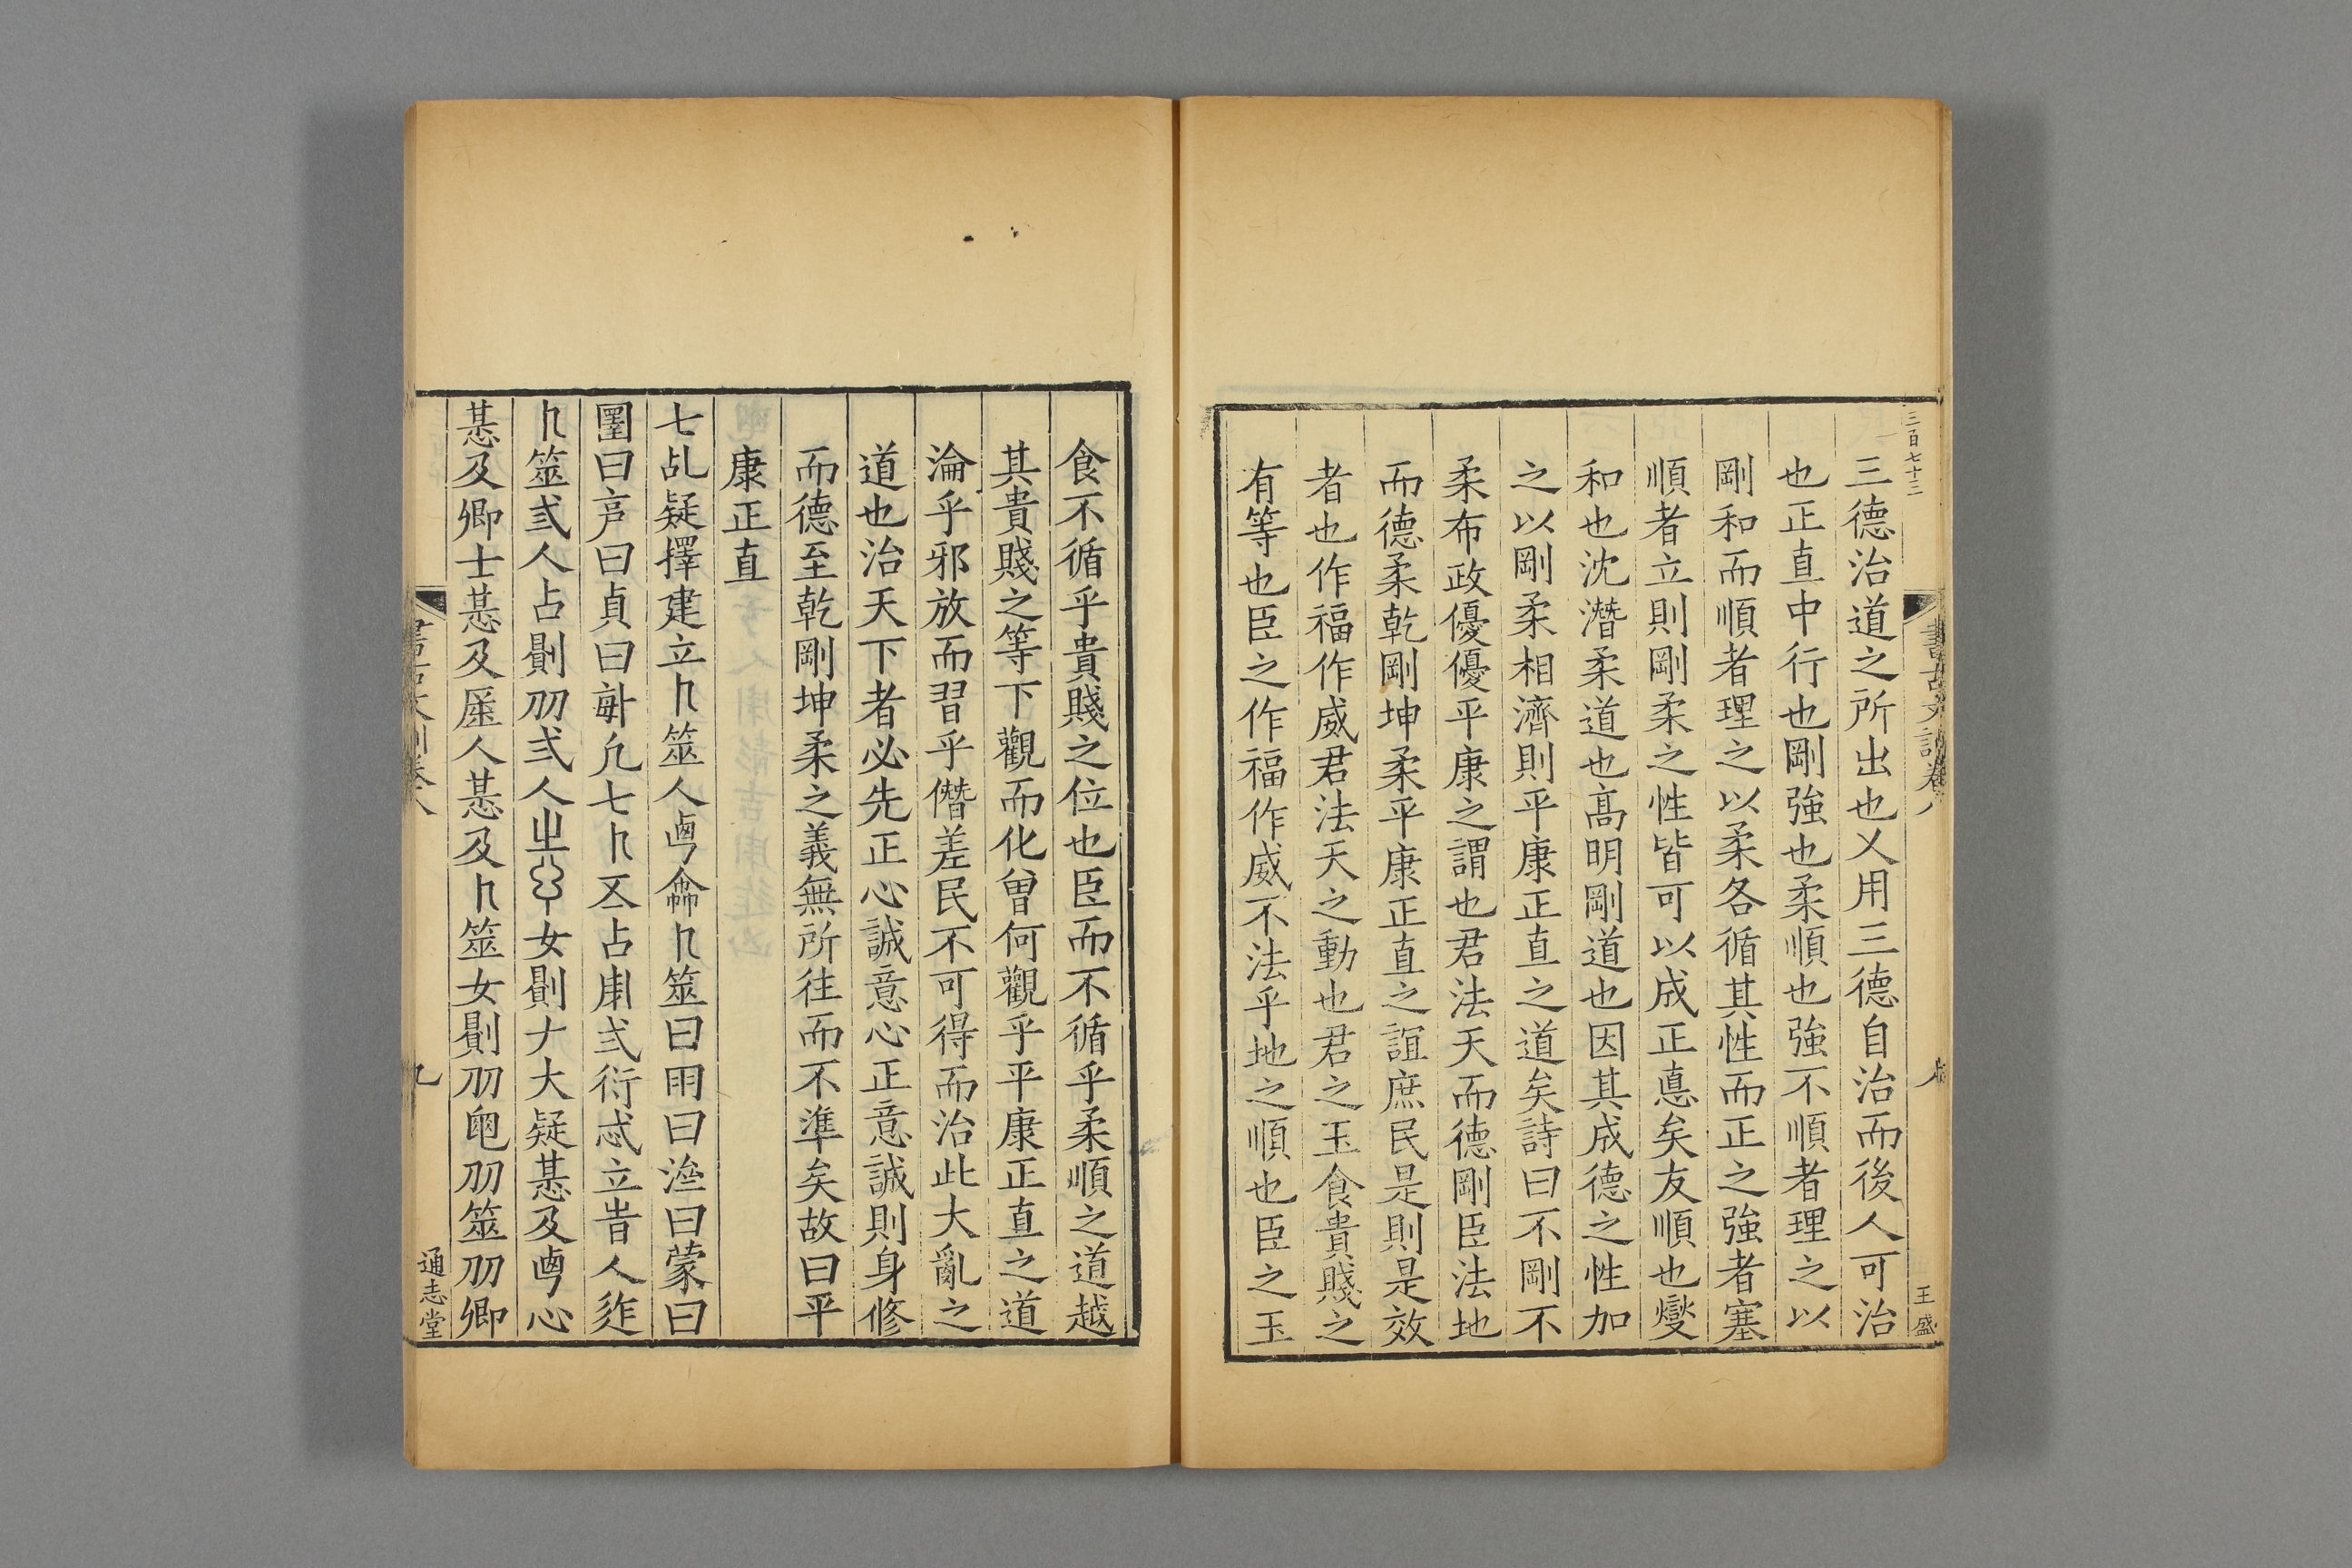 三百七十三
書古文訓卷八
八
王盛
三德治道之所出也乂用三德自治而後人可治
也正直中行也剛強也柔順也強不順者理之以
剛和而順者理之以柔各循其性而正之強者塞
順者立則剛柔之性皆可以成正悳矣友順也燮
和也沈潛柔道也高明剛道也因其成德之性加
之以剛柔相濟則平康正直之道矣詩曰不剛不
柔布政優優平康之謂也君法天而德剛臣法地
而德柔乾剛坤柔平康正直之誼庶民是則是效
者也作福作威君法天之動也君之玉食貴賤之
有等也臣之作福作威不法乎地之順也臣之玉
食不循乎貴賤之位也臣而不循乎柔順之道越
其貴賤之等下觀而化曾何觀乎平康正直之道
淪乎邪放而習乎僭差民不可得而治此大亂之
道也治天下者必先正心誠意心正意誠則身修
而德至乾剛坤柔之義無所往而不準矣故曰平
康正直
七乩疑擇建立卜筮人𠧟龠卜筮曰雨曰𣵀曰蒙曰
圛曰㐭曰貞曰𠧩凢七卜𠄡占𤰃弍衍忒立旹人𨒫
卜筮弎人占𠟭刅弎人㞢女𠟭𠂇大疑惎及𠧟心
惎及卿士惎及𡈼人惎及卜筮女𠟭刅龟刅筮刅卿
書古文訓卷八
九
通志堂